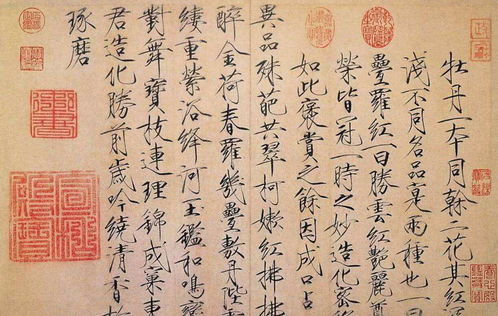 牡丹一本同幹二花其紅
淺不同名品寔兩種也一曰
疊羅紅一曰勝雲紅艷麗尊
榮皆冠一時之妙造化密
如此褒賞之餘因成口占
異品殊葩共翠柯嫩紅拂拂
醉金荷春羅幾疊敷丹陛雲
縷重縈浴絳河玉鑑和鳴鸞
對舞寶枝連理錦成窠東
君造化勝前歲吟繞清香故
琢磨